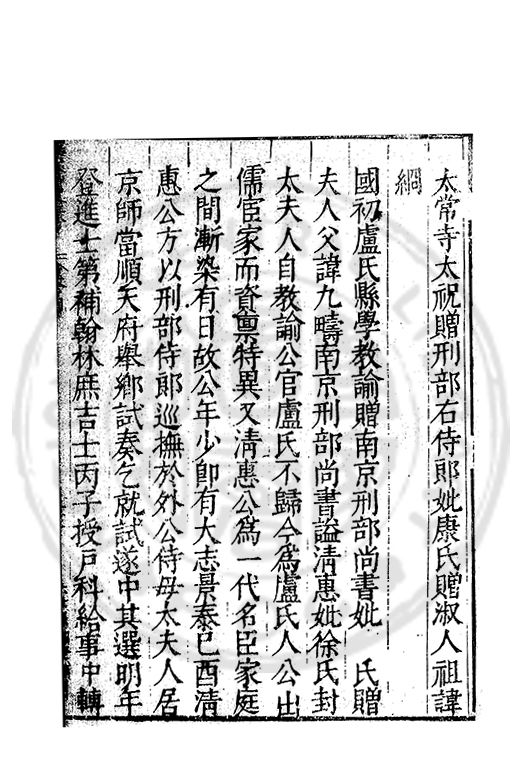 太常寺太祝贈刑部右侍郎妣康氏贈淑人祖諱
綱
國初盧氏縣學教諭贈南京刑部尚書妣　氏贈
夫人父諱九疇南京刑部尚書謚清惠妣徐氏封
太夫人自教諭公官盧氏不歸今為盧氏人公出
儒宦家而資稟特異又清惠公為一代名臣家庭
之間漸染有日故公年少即有大志景泰己酉清
惠公方以刑部侍郎巡撫於外公侍母太夫人居
京師當順天府舉鄉試奏乞就試遂中其選明年
登進士第補翰林庶吉士丙子授戶科給事中轉